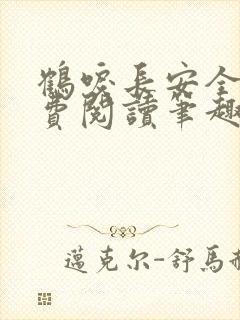 鶴唳長安全
費閱讀筆趣
邁克尔-舒馬赫